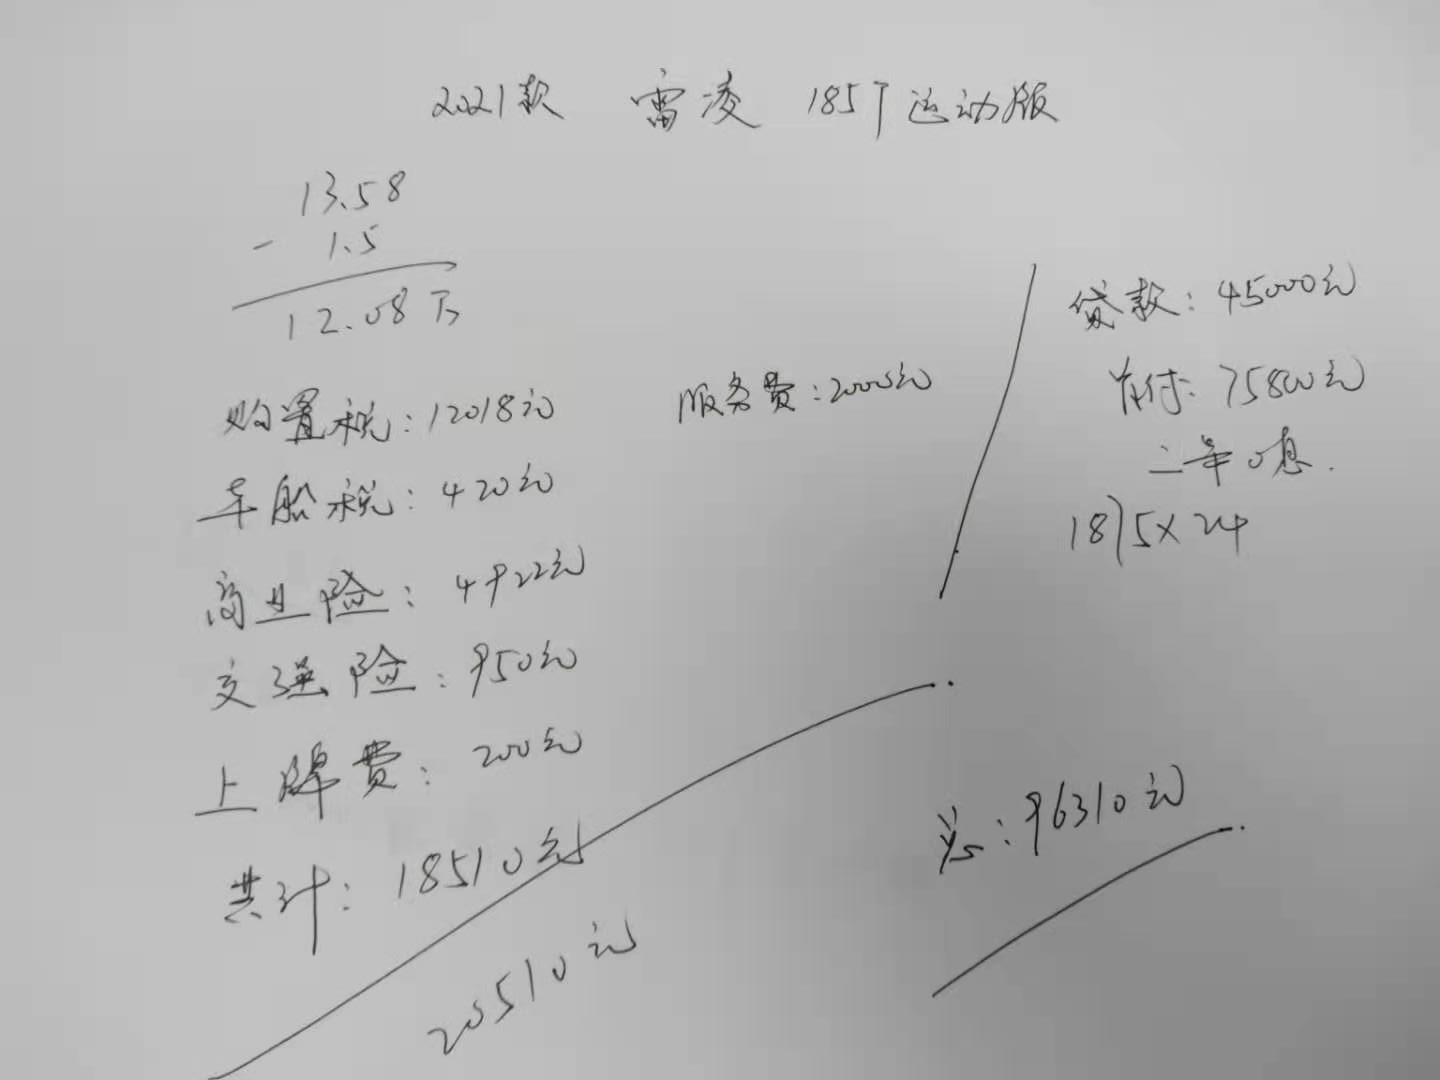 2021款 雷凌 185T运动版
13.58
- 1.5
12.08万
购置税:12018元
服务费:2000元
车船税:420元
商业险:4922元
交强险:950元
上牌费:200元
共计:18510元
20510元
贷款:45000元
首付:75800元
二年0息.
1875×24
总:96310元